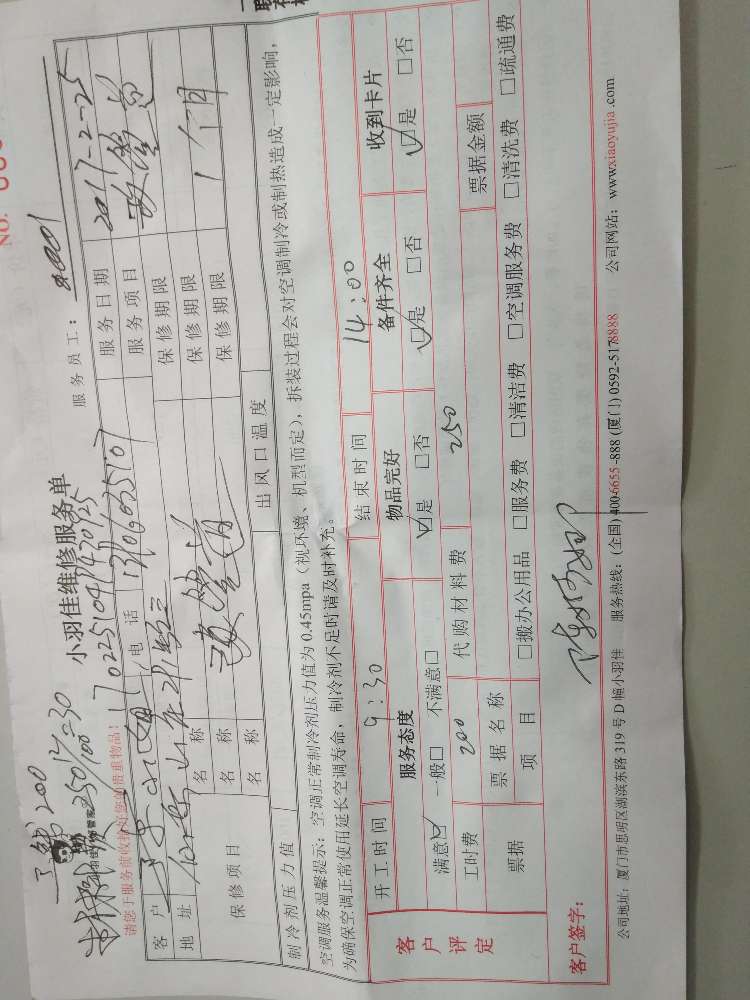 NO.
工钱200
材料 250/100
12=30
小羽佳维修服务单
服务员工：
请您于服务前收拾好您的贵重物品！
170225104142025
客户
电话
服务日期 2017-2-25
地址
服务项目
保修项目
名称
保修期限
名称
保修期限 1个月
名称
保修期限
制冷剂压力值
出风口温度
空调服务温馨提示：空调正常制冷剂压力值为0.45mpa（视环境、机型而定），拆装过程会对空调制冷或制热造成一定影响，
为确保空调正常使用延长空调寿命，制冷剂不足时请及时补充。
客户评定
开工时间 9:30 结束时间 14:00
服务态度 物品完好 备件齐全 收到卡片
满意☑ 一般□ 不满意□ ☑是 □否 ☑是 □否 ☑是 □否
工时费 200 代购材料费 250
票据 票据名称 票据金额
项目 □搬办公用品 □服务费 □清洁费 □空调服务费 □清洗费 □疏通费
客户签字：
公司地址：厦门市思明区湖滨东路319号D幢小羽佳 服务热线：(全国) 400-6655-888 (厦门) 0592-5178888 公司网站：www.xiaoyujia.com